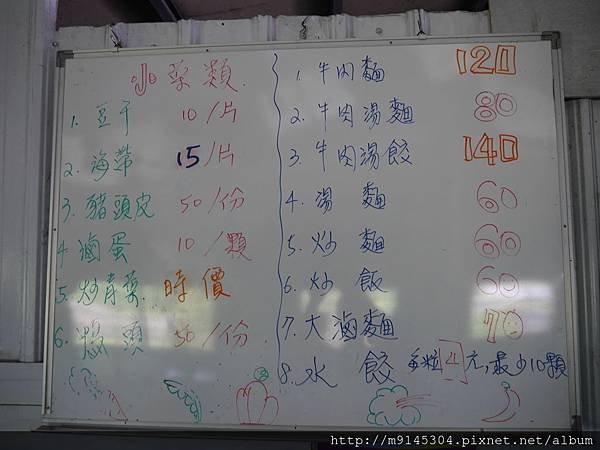 小菜類
1. 豆干 10/片
2. 海帶 15/片
3. 豬頭皮 50/份
4. 滷蛋 10/顆
5. 炒青菜. 時價
6. 頭 50/份
1. 牛肉麵 120
2. 牛肉湯麵 80
3. 牛肉湯餃 140
4. 湯 麵 60
5. 炒 麵 60
6. 炒 飯 60
7. 大滷麵 70
8. 水 餃 每粒4元,最少10顆
http://m9145304.pixnet.net/album